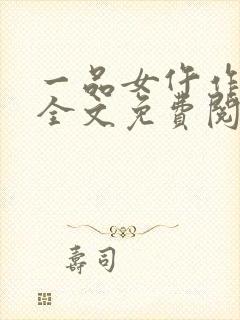 一品女仵作
全文免費閱
壽司